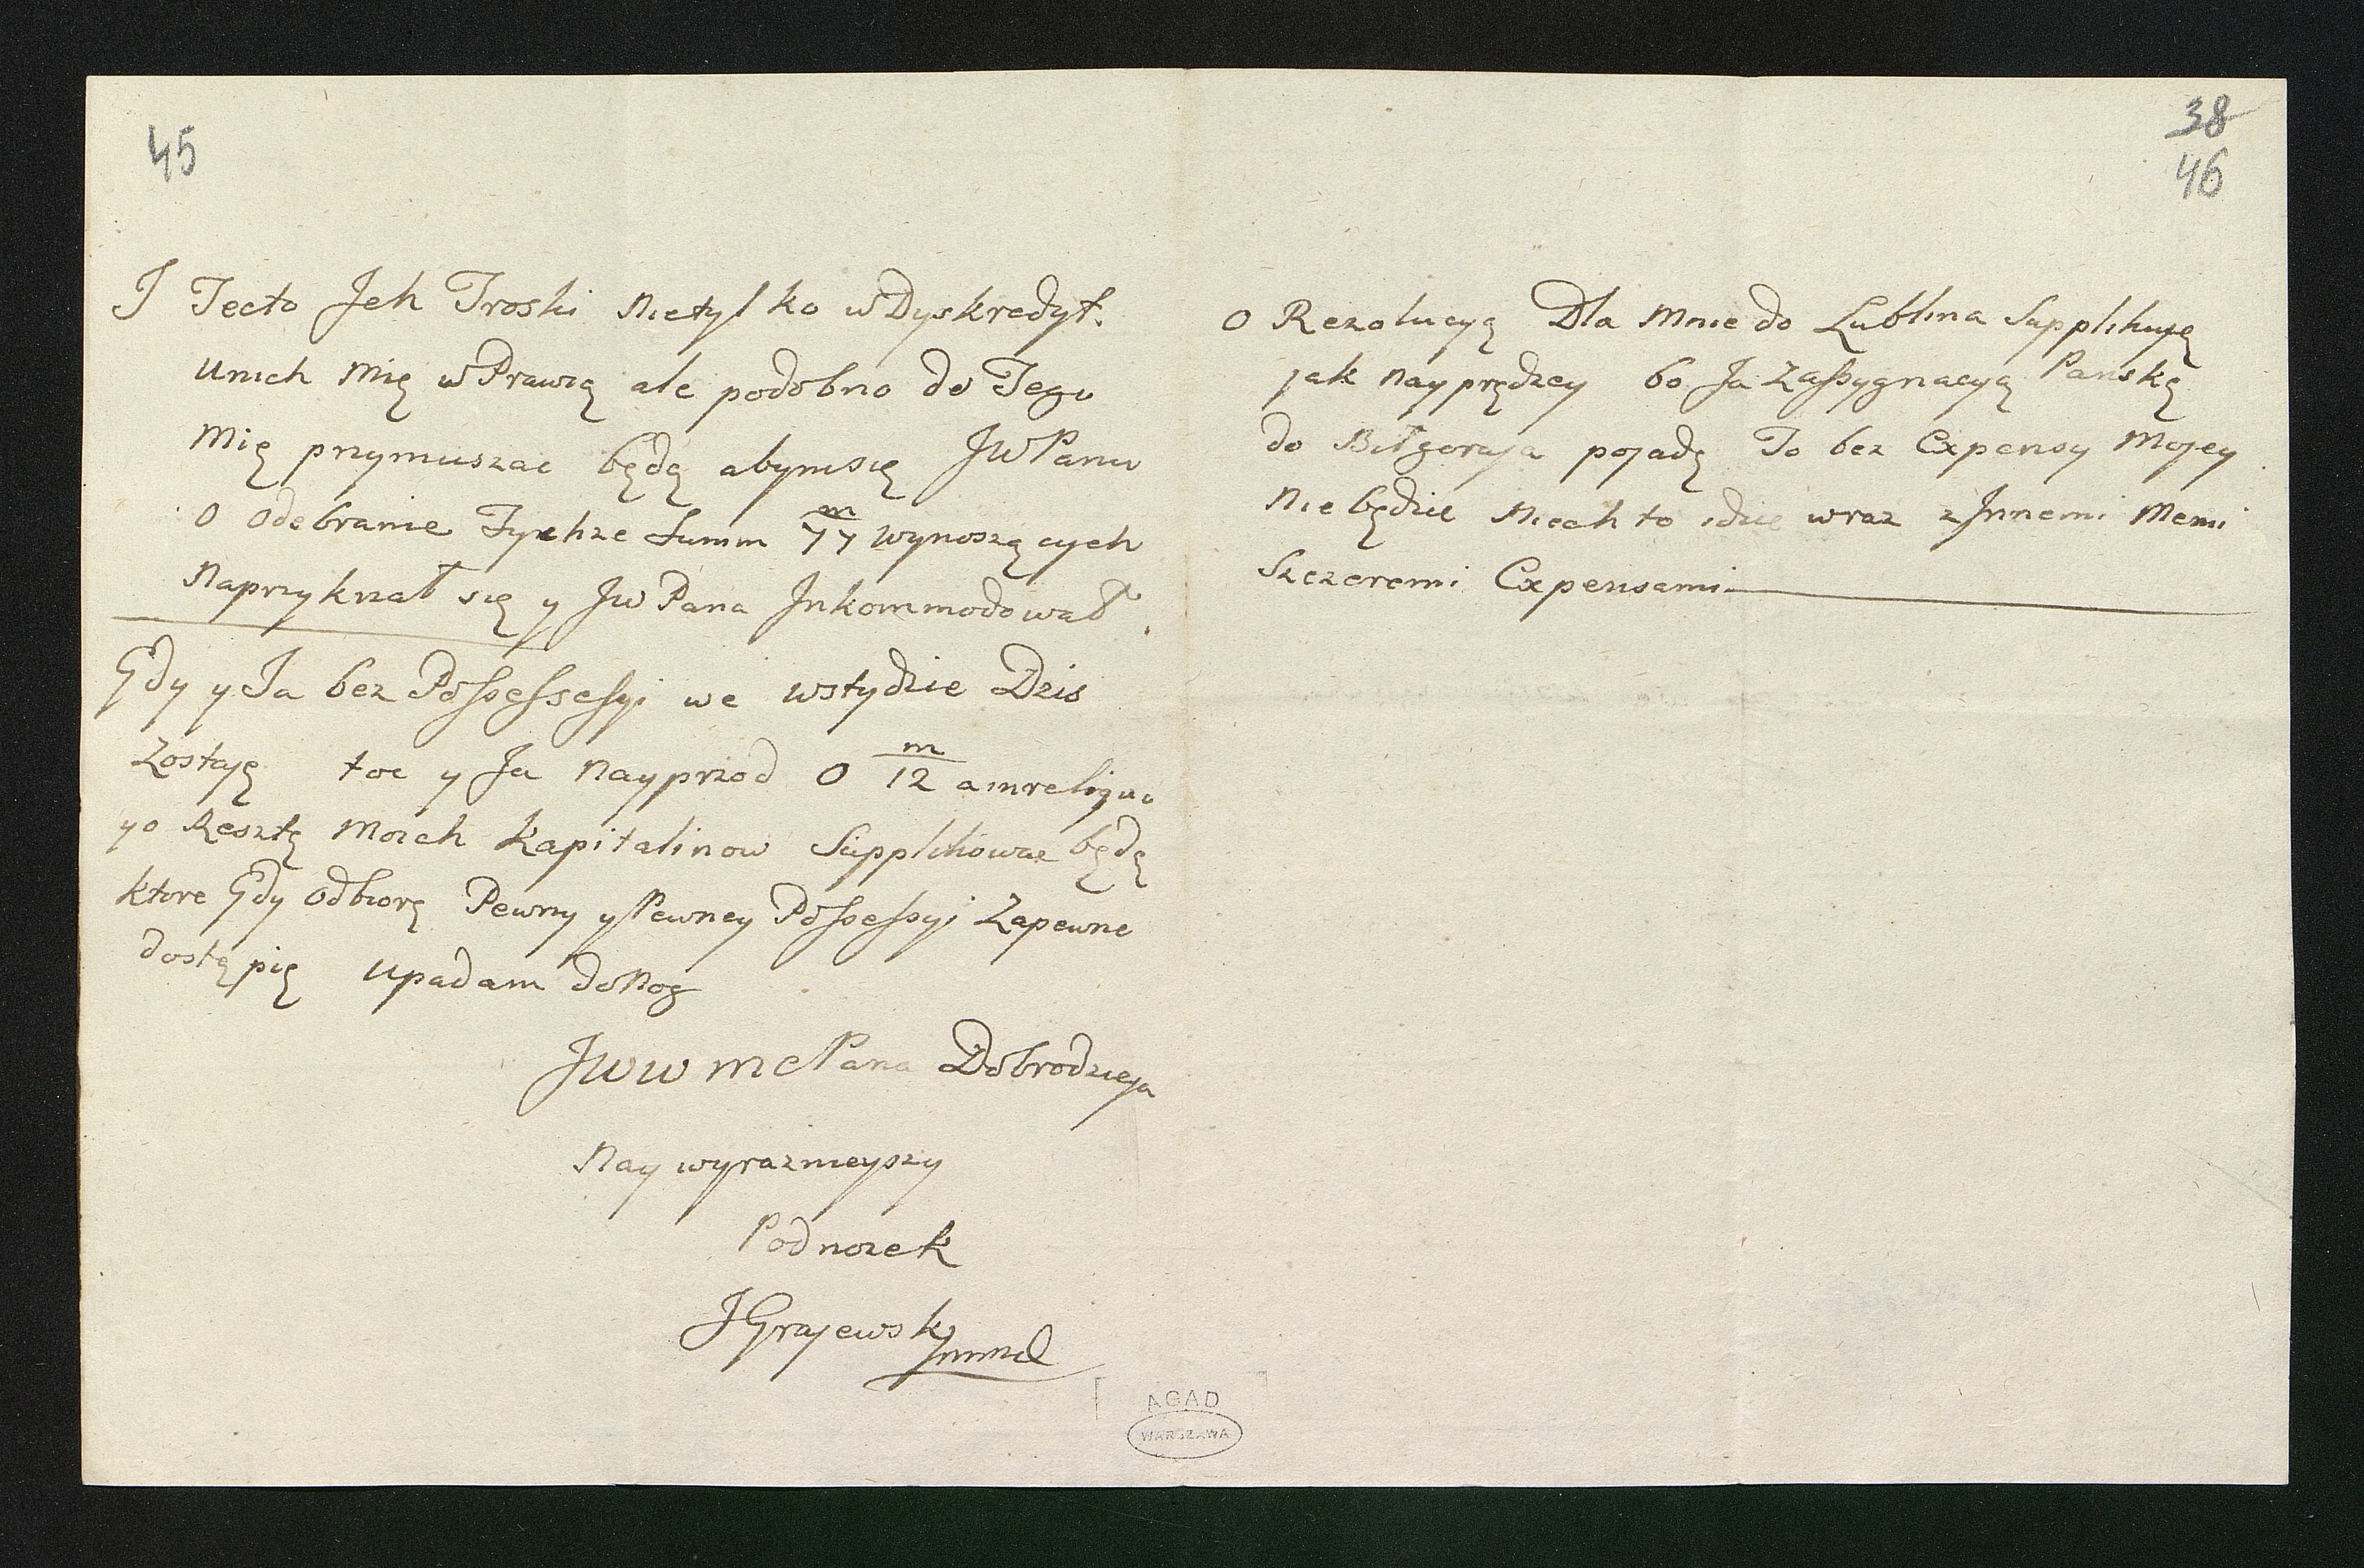 45
I Tecto Jch Troski nietylko w Dyskredyt.
unich mię w Prawią ale podobno do Tego
mię przymuszac będą abymsię JWPanu
o odebranie Tychze Summ 77/m wynoszących
naprzykrzał się y JwPana Inkommodował.
Gdy y Ja bez Possessessyi we wstydzie Dzis
zostaję toc y Ja nayprzod o 12/m
yo Resztę moich Kapitalinow Supplikowac będę
ktore Gdy odbiorę Pewny y Pewney Possessyi Zapewne
dostąpię upadam do Nog
JWW mc Pana Dobrodzieja
Nay wyraznieyszy
Podnozek
JGrajewski mmd
38
46
o Rezolucyą Dla mnie do Lublina Supplikuję
jak nayprędzey bo Ja zassygnacyą Panską
do Biłgoraja pojadę To bez Expensy mojey
nie będzie niech to idzie wraz z Innemi memi
szczeremi Expensami
AGAD
WARSZAWA